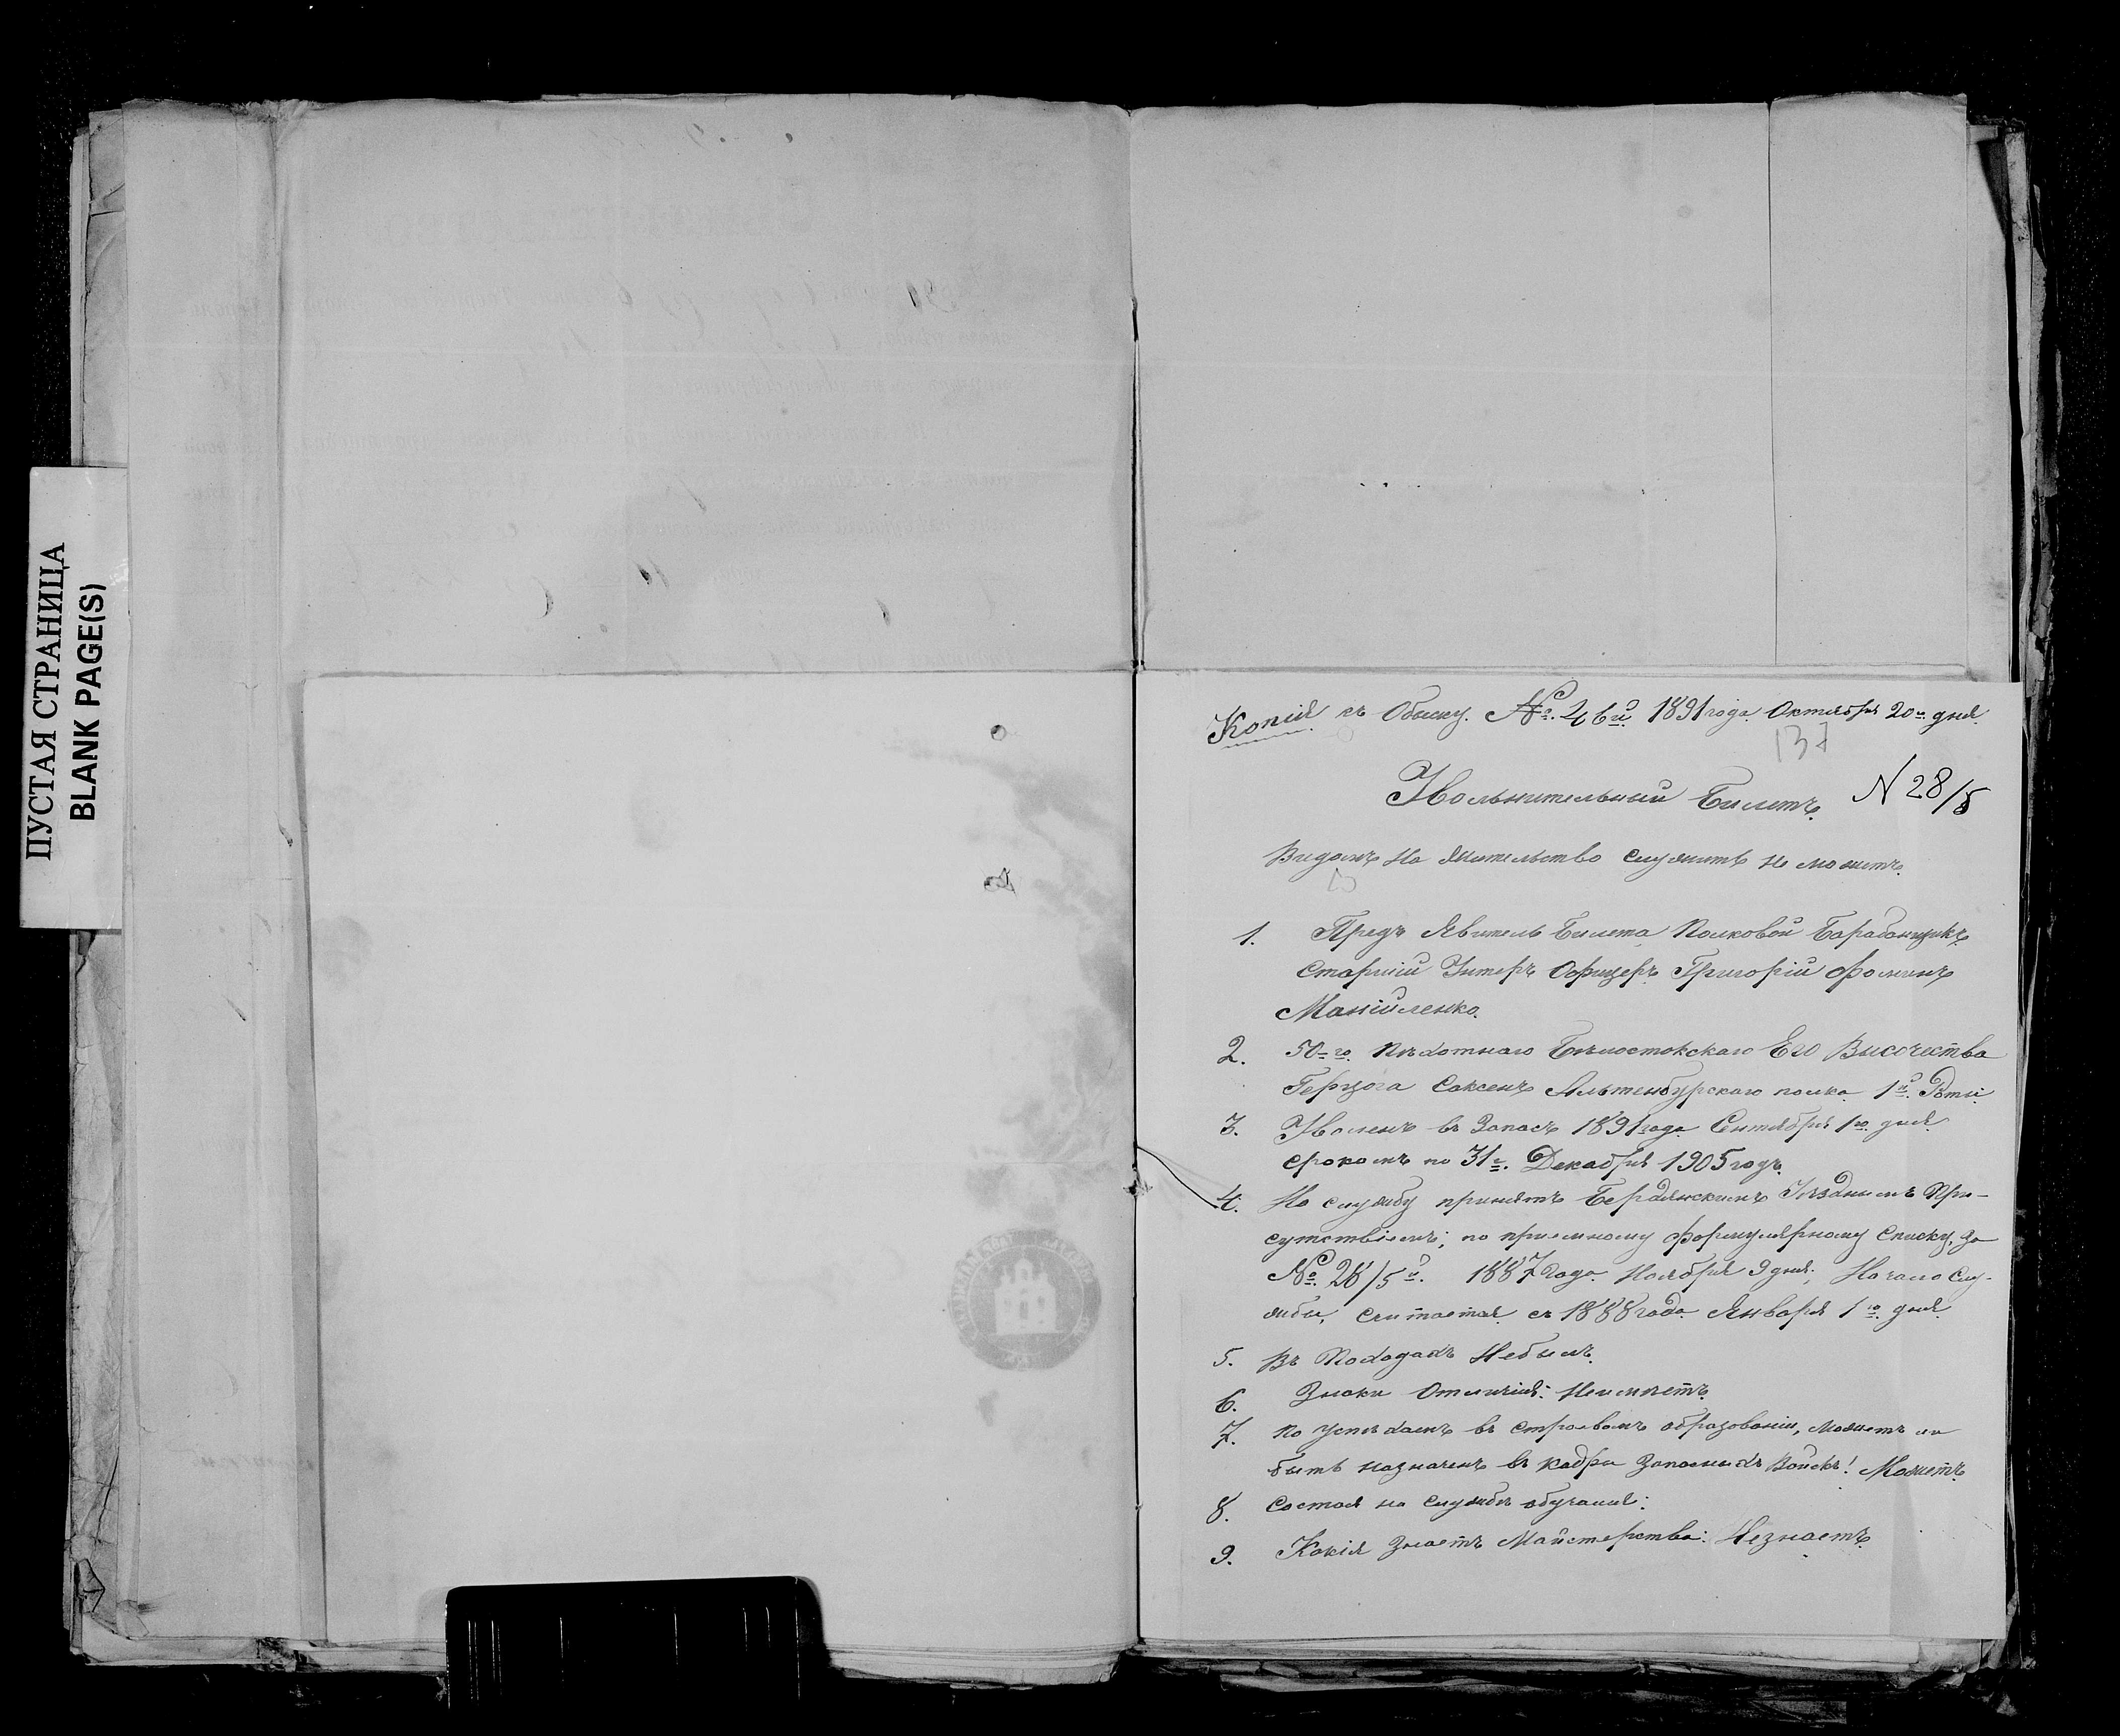 ПУСТАЯ СТРАНИЦА
BLANK PAGE(S)
Копія къ Обыску. №. 46й. 1891 года Октября 20го дня.
137
Увольнительный Билетъ. N 28/5
Видомъ на жительство служить не можетъ.
1. Предъ Явитель билета Полковой Барабанщикъ
Старшій Унтеръ Офицеръ Григорій Фоминъ
Манійленко.
2. 50-го Пѣхотнаго Бѣлостокскаго Его Высочества
Герцога Саксенъ Альтенбургскаго полка 1й Роты
3. Уволенъ въ Запасъ 1891 года Сентября 1го дня
срокомъ по 31е. Декабря 1905 годъ.
4. На службу принятъ Бердянскимъ Уѣзднымъ При-
сутствіемъ; по пріемному формулярному Списку, за
№ 28/5й. 1887 года. Ноября 9 дня; Начало Слу-
жбы, Считается съ 1888 года Января 1го дня.
5. Въ Походахъ Небылъ.
6. Знаки Отличія: Неимѣетъ.
7. По успѣхамъ въ Строевомъ образованіи, можетъ ли
быть назначенъ въ Кадры Запасныхъ Войскъ! Можетъ.
8. Состоя на Службѣ обучался:
9. Какія Знаетъ Майстерства: Незнаетъ.